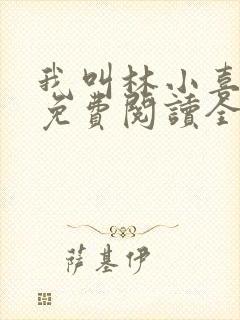 我叫林小喜
免費閱讀全
萨基伊